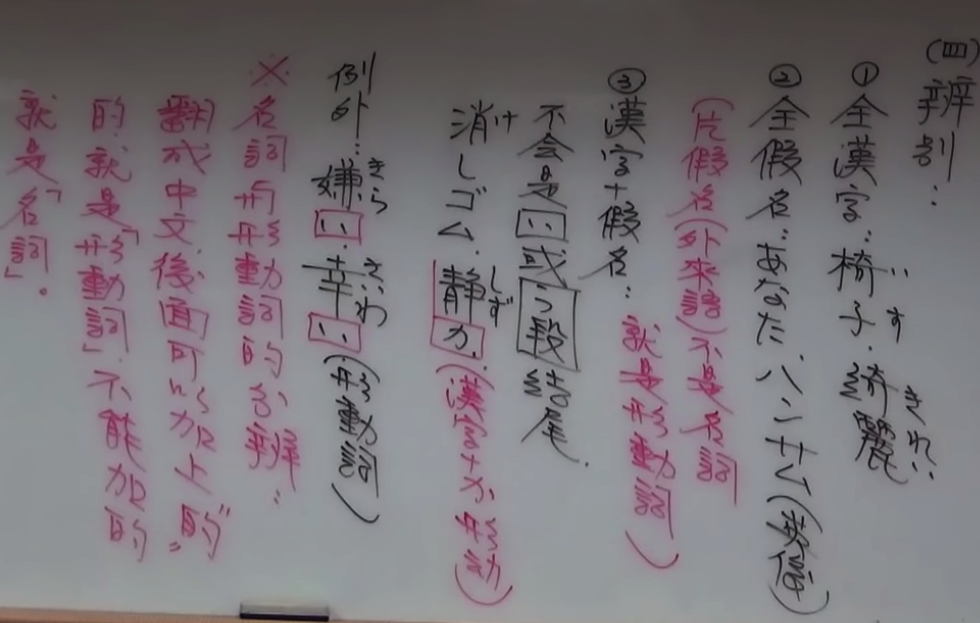 (四)辨別:
①全漢字:椅子.綺麗
いす きれい
②全假名:あなた.ハンサム(英俊)
(片假名(外來語)不是名詞
就是形動詞)
③漢字+假名:
不会是い或う段結尾.
消しゴム.静か.(漢字+か形動)
け しず
例外:嫌い.幸い(形動詞)
きら さいわ
※名詞与形動詞的分辨:
翻成中文,後面可以加上"的"
的,就是「形動詞」.不能加的
就是「名詞」.